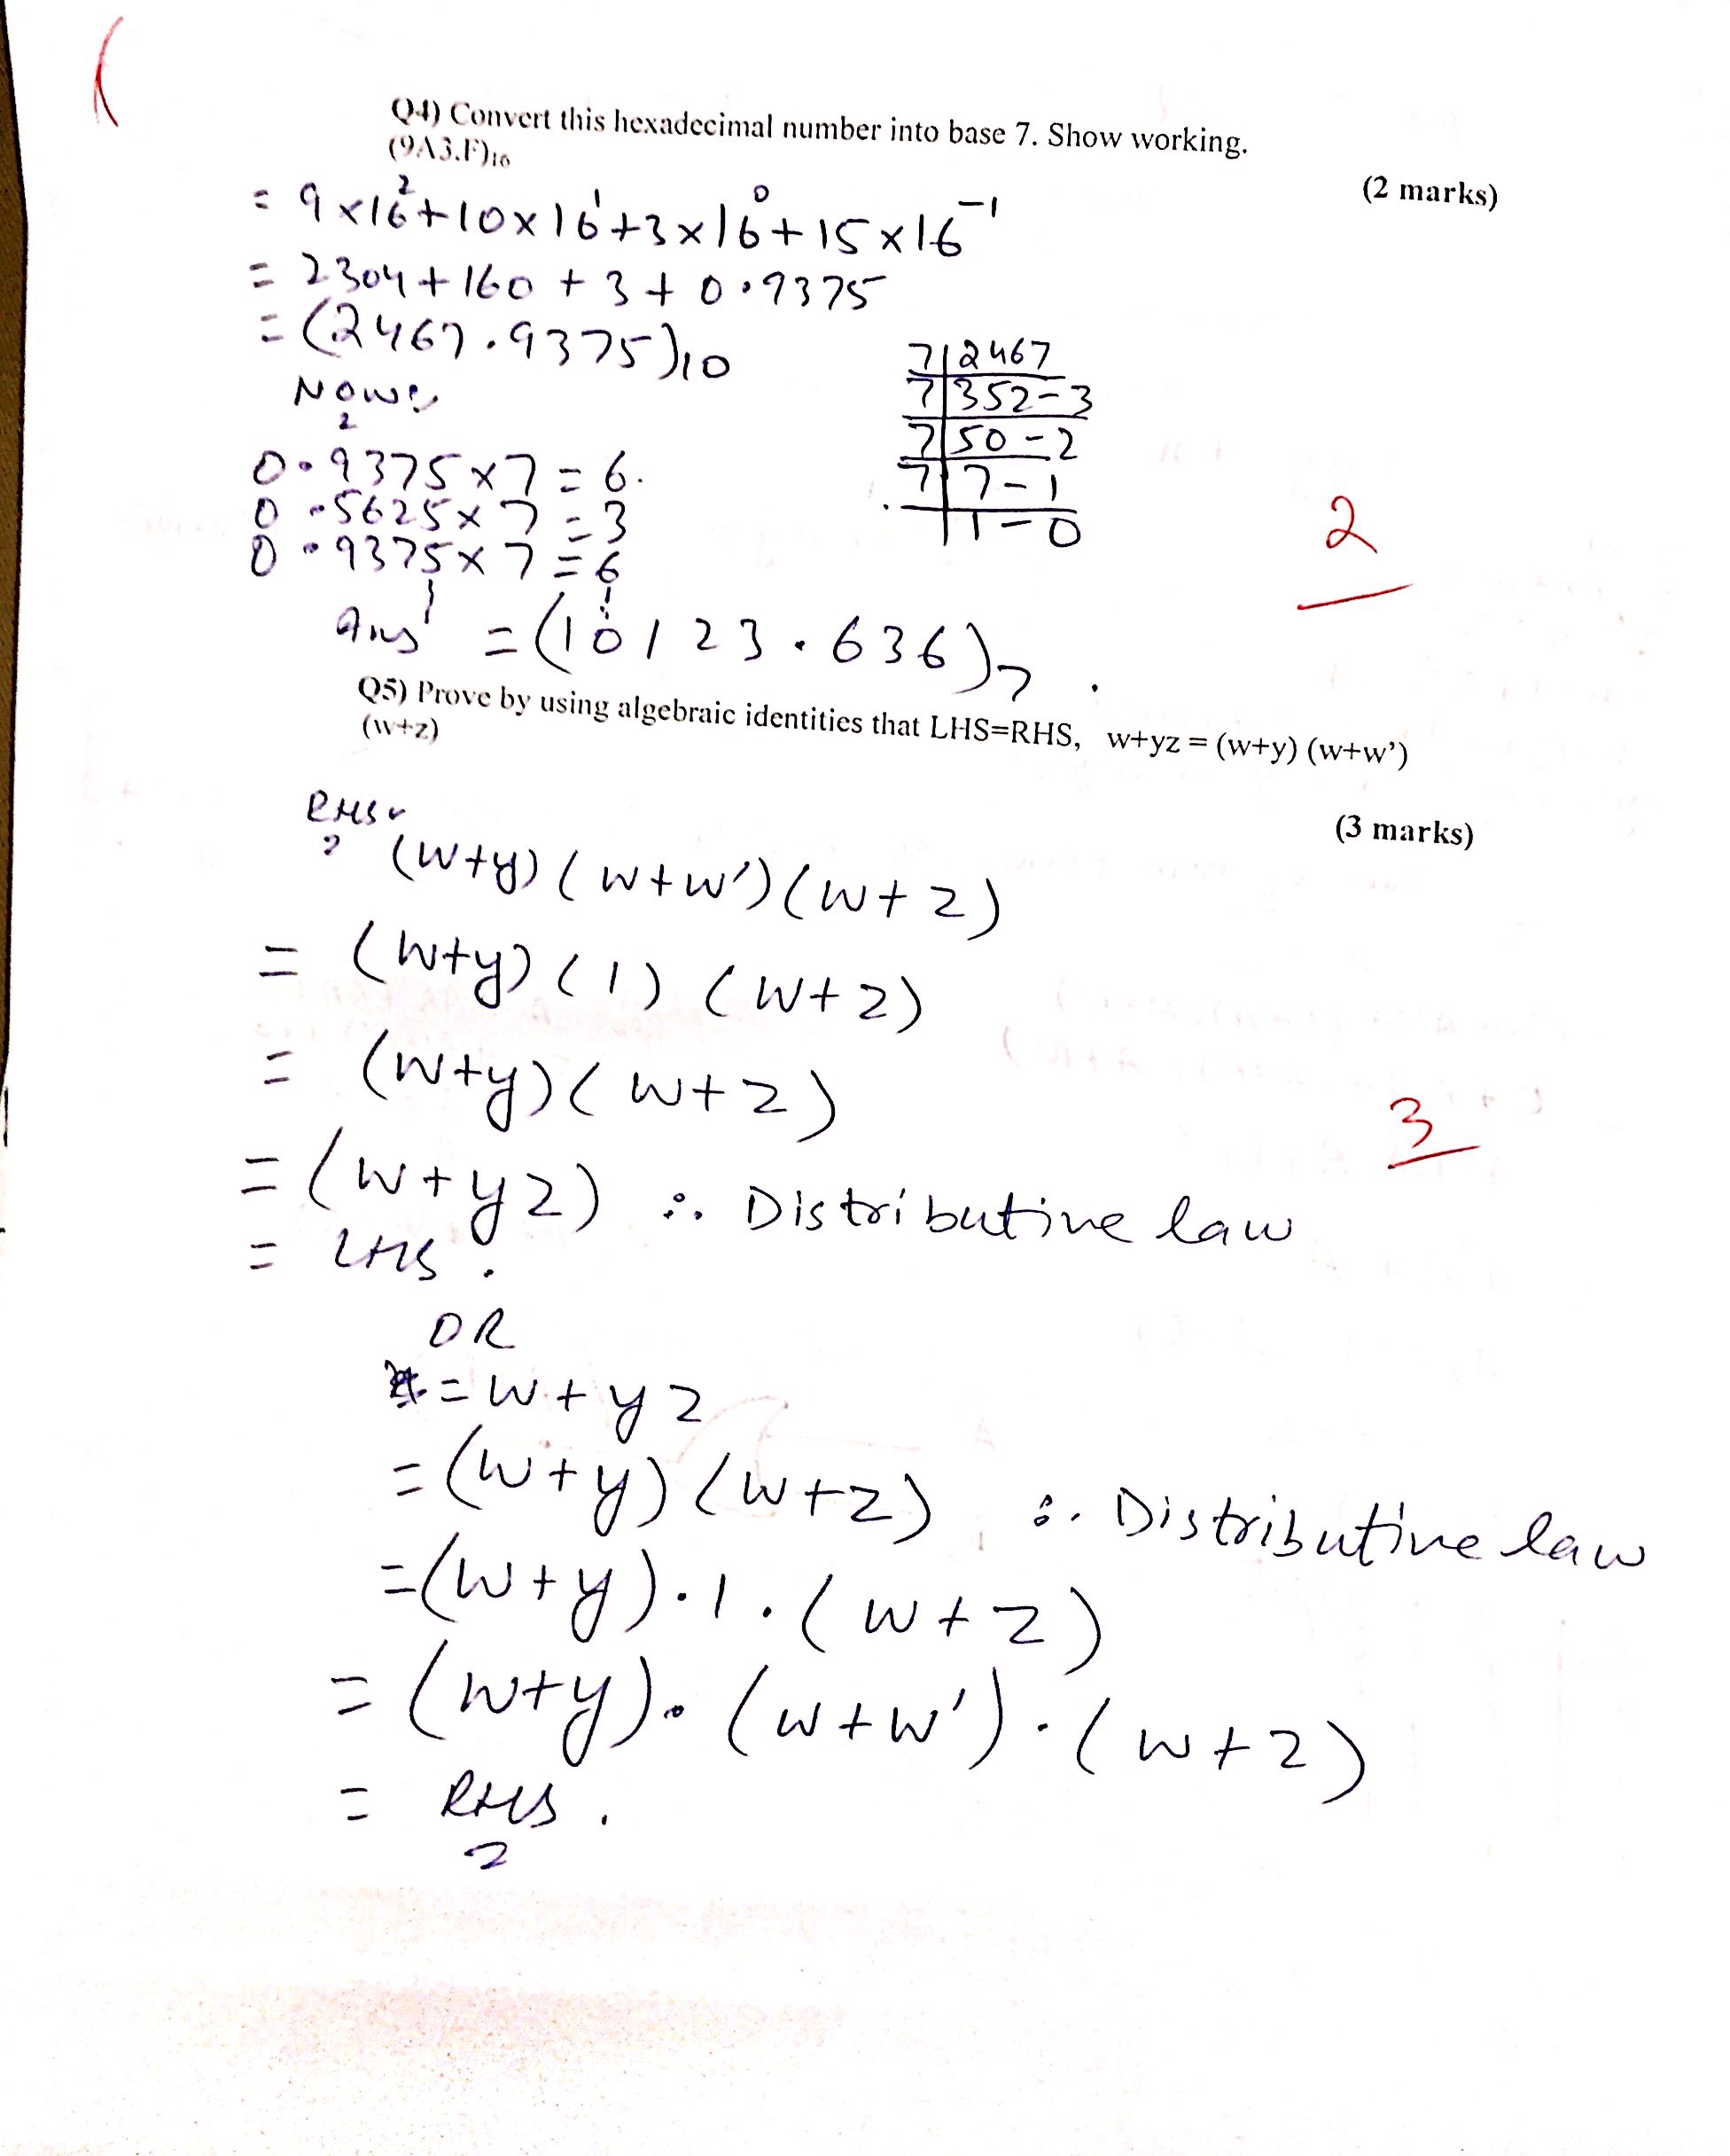 Q4) Convert this hexadecimal number into base 7. Show working.
(9A3.F)16
(2 marks)
= 9×16²+10×16¹+3×16⁰+15×16⁻¹
= 2304+160+3+0.9375
= (2467.9375)10
Now,
7|2467
7|352-3
7|50-2
7|7-1
|1-0
0.9375×7=6.
0.5625×7=3
0.9375×7=6
2
Ans = (10123.636)7.
Q5) Prove by using algebraic identities that LHS=RHS, w+yz = (w+y) (w+w’)
(w+z)
(3 marks)
RHS
(w+y)(w+w')(w+z)
= (w+y)(1)(w+z)
= (w+y)(w+z)
3
= (w+yz) ∴ Distributive law
= LHS.
OR
= w+yz
= (w+y)(w+z) ∴ Distributive law
= (w+y).1.(w+z)
= (w+y).(w+w').(w+z)
= RHS.